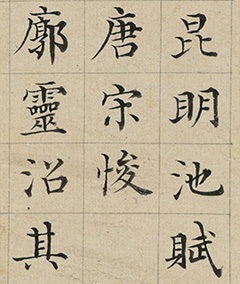 昆明池賦
唐宋悛
廓靈沼其